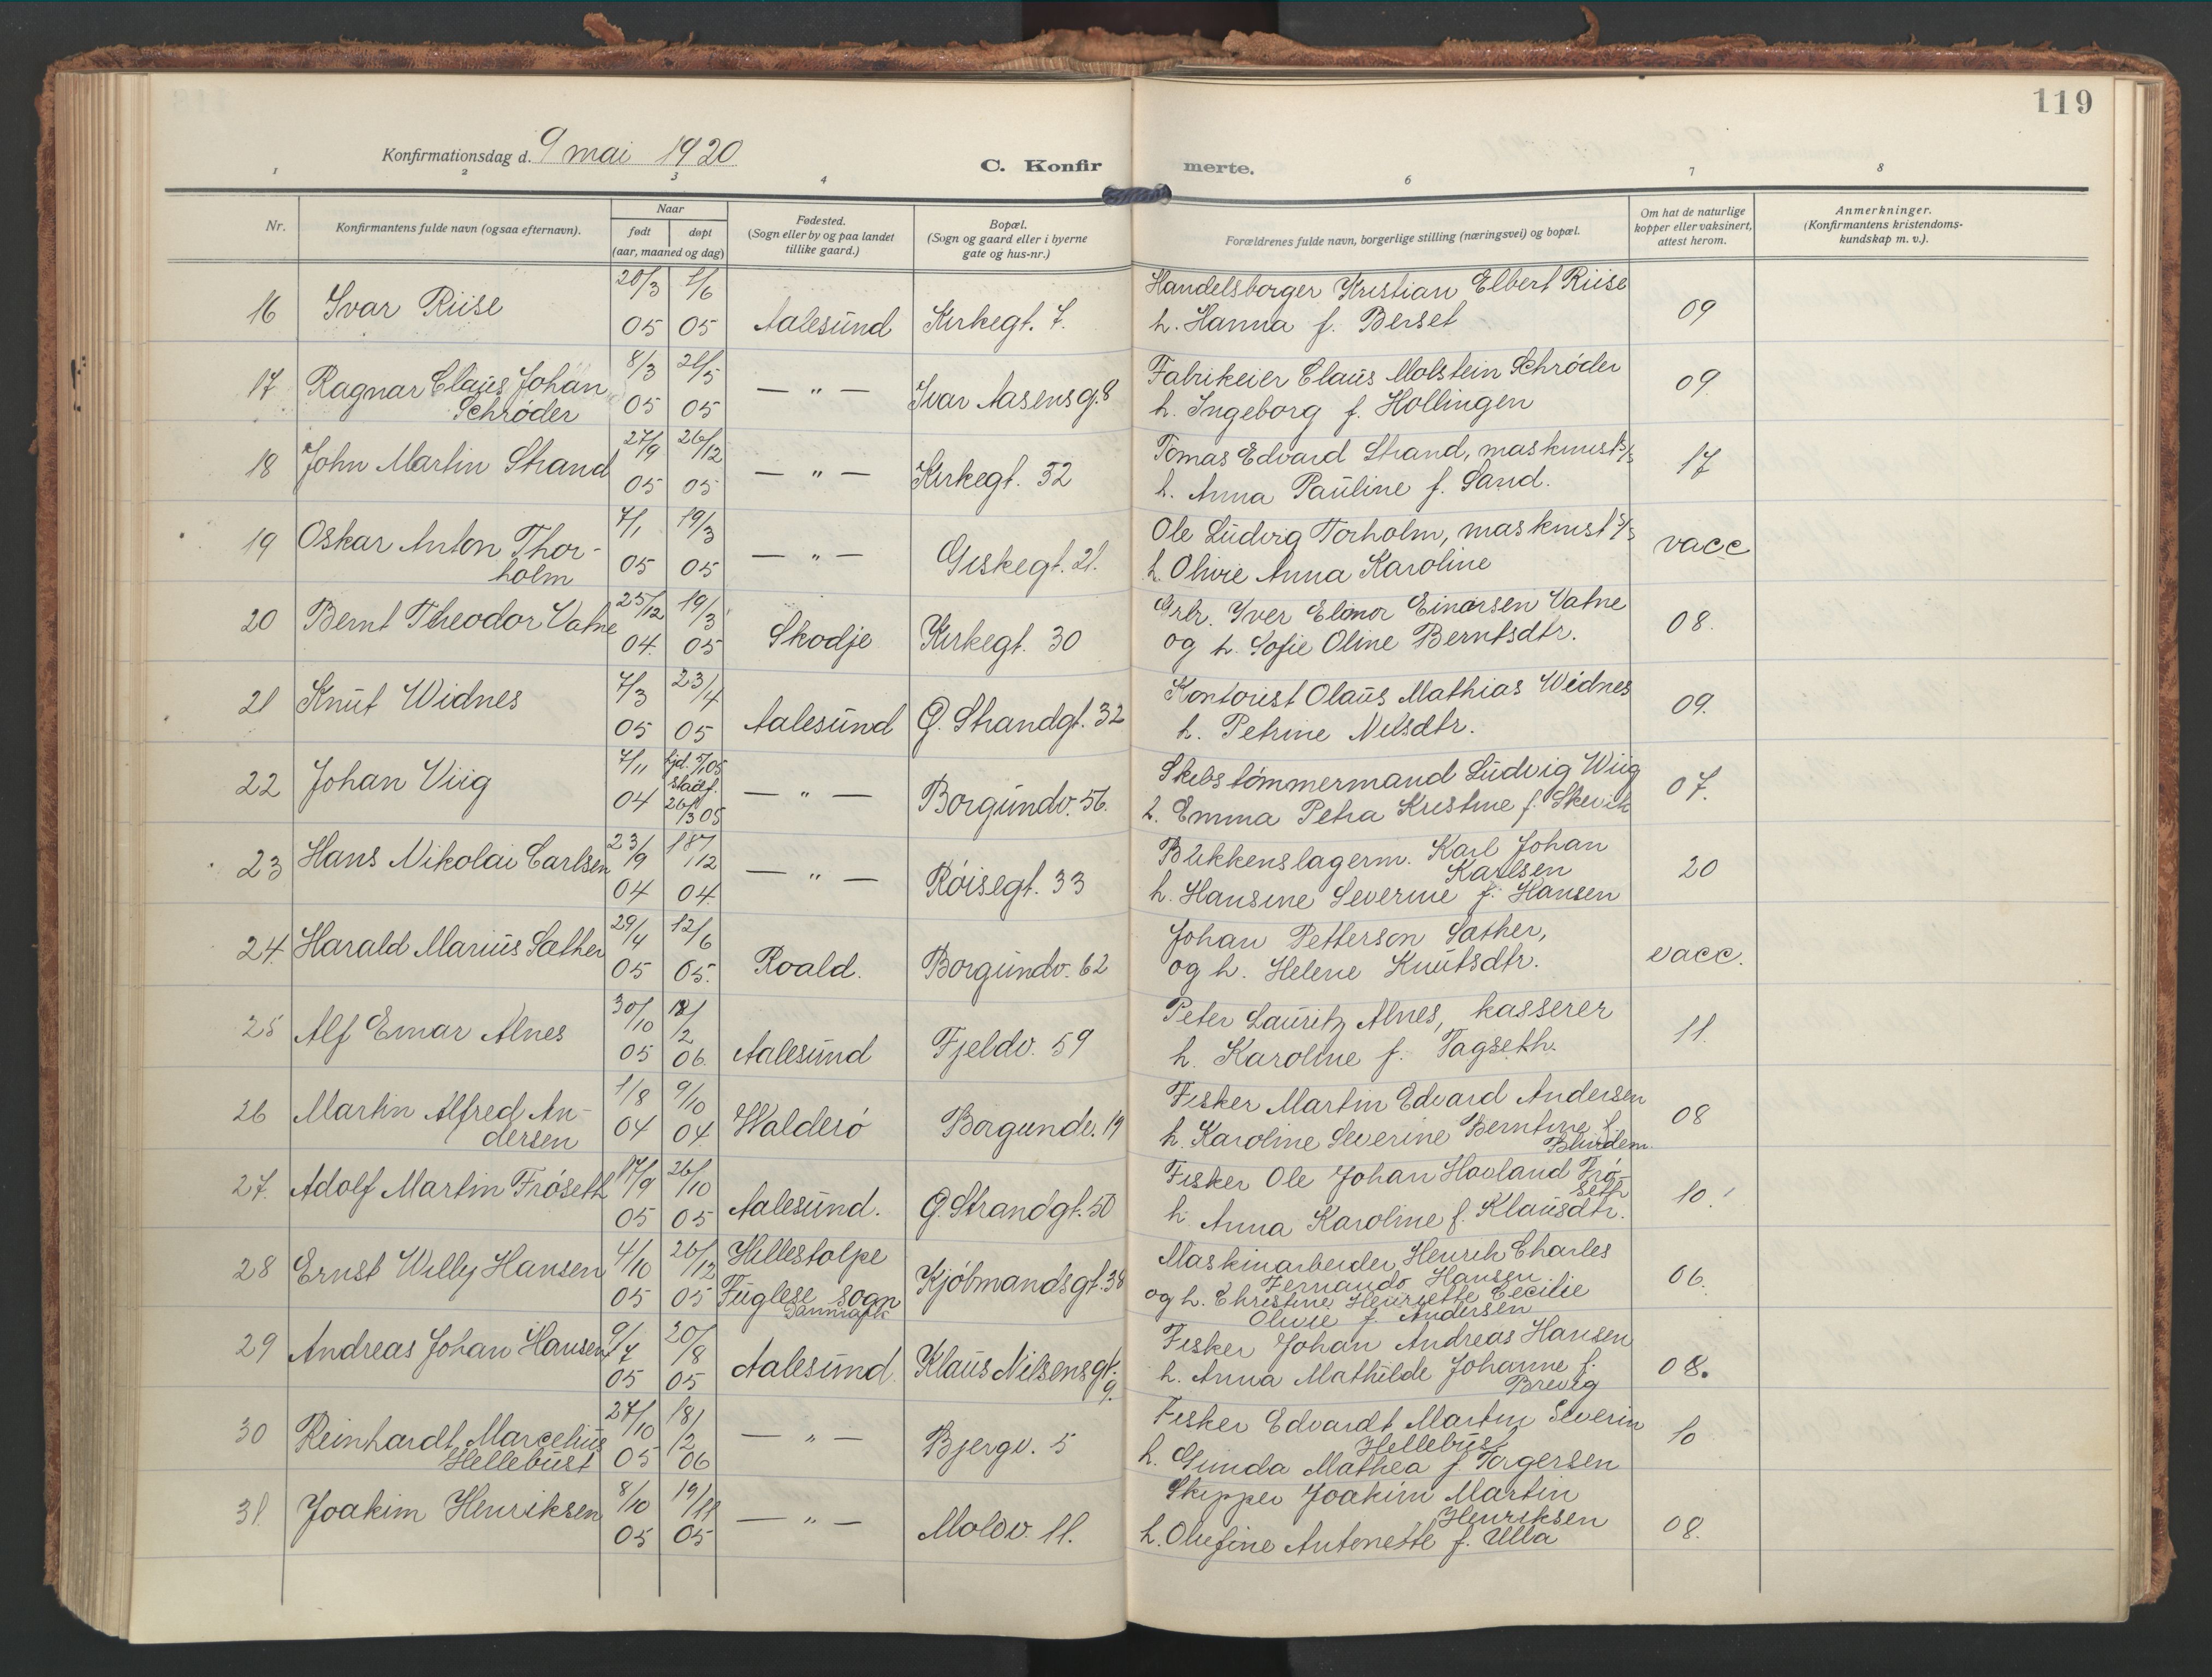 119
Konfirmationsdag d. 9 mai 1920
C. Konfir merte.
1 2 3 4 6 7 8
Nr.
Konfirmantens fulde navn (ogsaa efternavn).
Naar
født døpt
(aar, maaned og dag)
Fødested.
(Sogn eller by og paa landet
tillike gaard.)
Bopæl.
(Sogn og gaard eller i byerne
gate og hus-nr.)
Forældrenes fulde navn, borgerlige stilling (næringsvei) og bopæl.
Om hat de naturlige
kopper eller vaksinert,
attest herom.
Anmerkninger.
(Konfirmantens kristendoms-
kundskap m. v.).
16 Ivar Riise 20/3 05 1/6 05 Aalesund Kirkegt. 7. Handelsborger Kristian Elbert Riise
h. Hanna f. Berset 09
17 Ragnar Claus Johan
Schrøder 8/3 05 21/5 05 — " — Ivar Aasensg. 8 Fabrikeier Claus Molstein Schrøder
h. Ingeborg f. Hollingen 09.
18 John Martin Strand 27/9 05 26/12 05 — " — Kirkegt. 32 Tomas Edvard Strand, maskinist d/s
h. Anna Pauline f. Sand. 17
19 Oskar Anton Thor-
holm 7/1 05 19/3 05 — " — Giskegt. 21. Ole Ludvig Torholm, maskinist d/s
h. Olivie Anna Karoline vacc
20 Bernt Theodor Vatne 25/12 04. 19/3 05 Skodje Kirkegt. 30 Grbr. Iver Elinor Einarsen Vatne
og h. Sofie Oline Berntsdtr. 08.
21 Knut Widnes 7/3 05 23/4 05 Aalesund G. Strandgt. 32 Kontorist Olaus Mathias Widnes
h. Petrine Nilsdtr. 09.
22 Johan Viig 7/11 04 hjd. 5/1 05
stadf.
26/3 05 — " — Borgundv. 56. Skibstømmermand Ludvig Wiig
h. Emma Petra Kristine f. Skevik 07.
23 Hans Nikolai Carlsen 23/9 04 18/12 04. — " — Røisegt. 33 Blikkenslagerm. Karl Johan
Karlsen
h. Hansine Severine f. Hansen 20
24. Harald Marius Sæther 29/4 05 12/6 05. Roald. Borgundv. 62 Johan Petterson Sæther,
og h. Helene Knutsdtr. vacc.
25 Alf Einar Alnes 30/10 05 18/2 06. Aalesund Fjeldv. 59 Peter Lauritz Alnes, kasserer
h. Karoline f. Fagseth. 11.
26 Martin Alfred An-
dersen 1/8 04 9/10 04. Walderø Borgundv. 19 Fisker Martin Edvard Andersen
h. Karoline Severine Berntine f.
Blindem. 08
27. Adolf Martin Frøseth 17/9 05 26/10 05 Aalesund. G. Strandgt. 50 Fisker Ole Johan Hovland Frø-
seth
h. Anna Karoline f. Klausdtr. 10.
28 Ernst Willy Hansen 4/10 05 26/12 05 Hillestolpe
Fuglese sogn
Danmark Kjøbmandsgt. 38 Maskinarbeider Henrik Charles
Fernando Hansen
og h. Christine Henriette Cecilie
Olivie f. Andersen 06.
29 Andreas Johan Hansen 9/7 05 20/8 05 Aalesund. Klaus Nilsensgt.
9. Fisker Johan Andreas Hansen
h. Anna Mathilde Johanne f.
Brevig 08.
30 Reinhardt Marcelius
Hellebust 27/10 05 18/2 06 — " — Bjergv. 5 Fisker Edvardt Martin Severin
Hellebust
h. Gunda Mathea f. Torgersen 10
31. Joakim Henriksen 8/10 05 19/11 05 — " — Moldv. 11. Skipper Joakim Martin
Henriksen
h. Olufine Antonette f. Ulla 08.